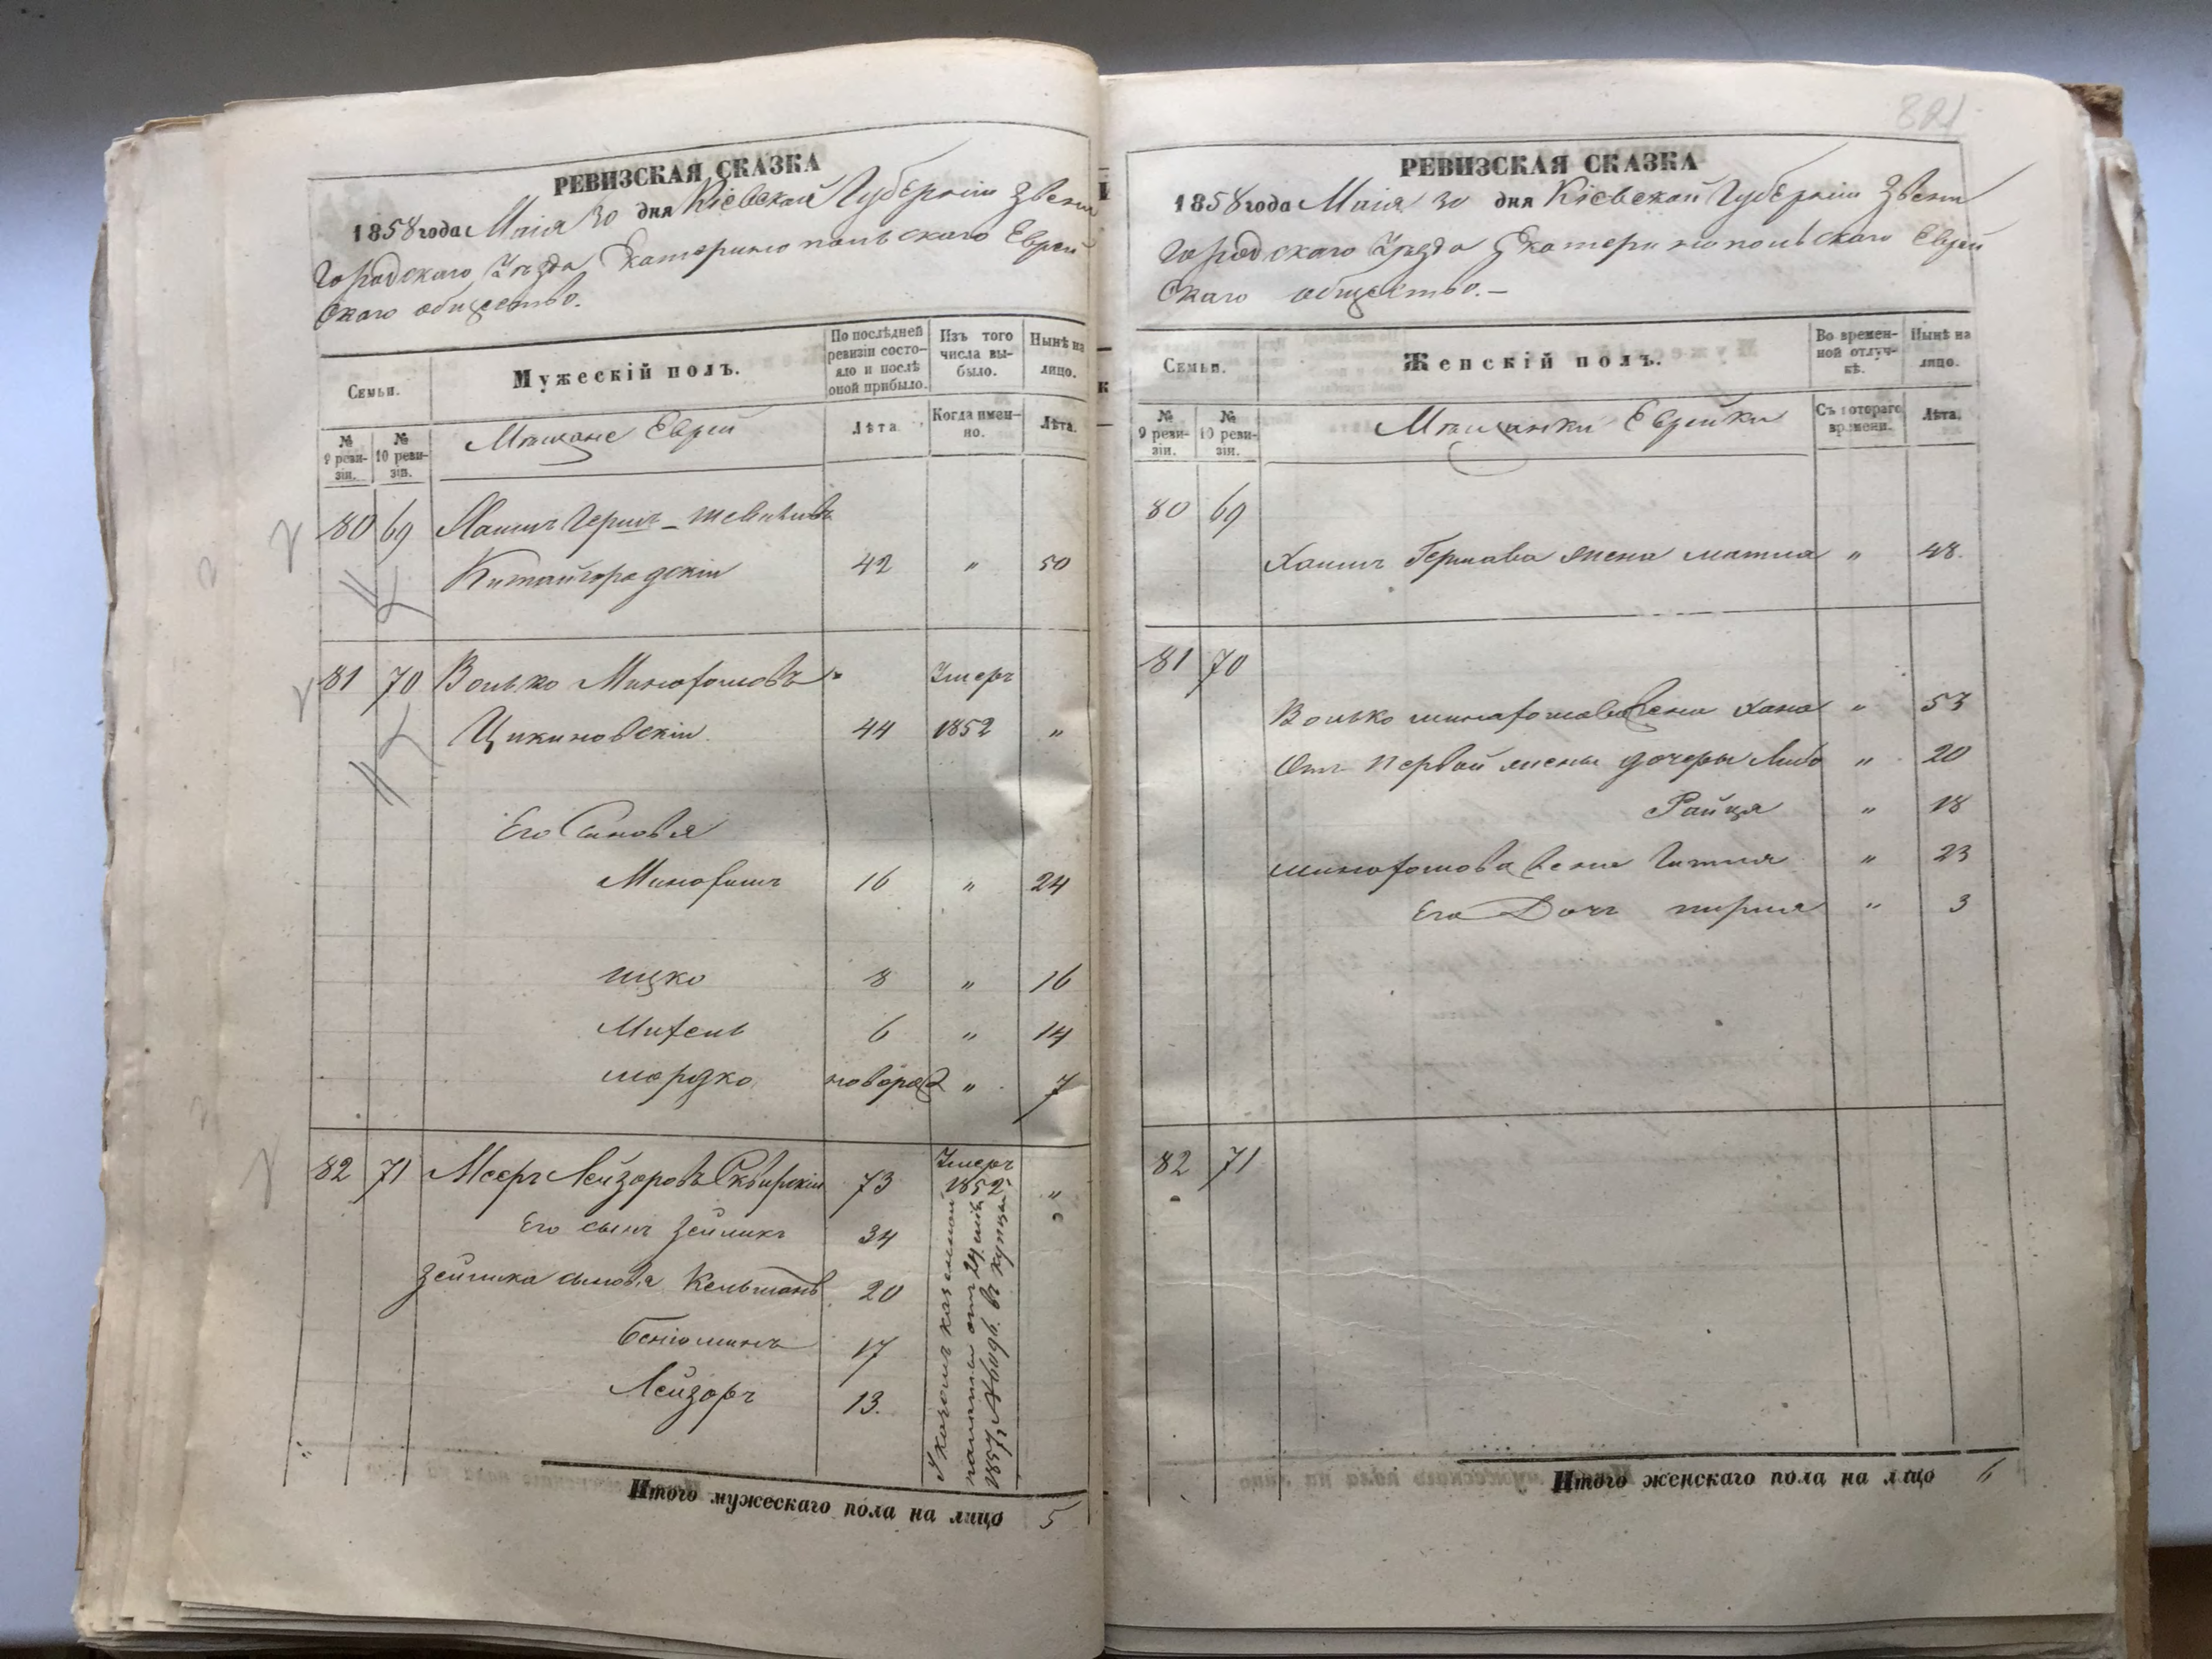 РЕВИЗСКАЯ СКАЗКА
1858 года Маія 30 дня Кіевской Губерніи Звени
городскаго Уѣзда Екатеринопольскаго Еврей
скаго общество.
Семьи.
Мужескій полъ.
По послѣдней ревизіи состояло и послѣ оной прибыло.
Изъ того числа выбыло.
Нынѣ на лицо.
№ 9 ревизіи.
№ 10 ревизіи.
Мѣщане Евреи
Лѣта
Когда именно.
Лѣта.
80 69 Хаимъ Герш-
Китайгородскіи 42 " 50
81 70 Волько Манашовъ Умеръ
Цикиновскіи 44 1852 "
Его Сыновья
16 " 24
Ицко 8 " 16
Михель 6 " 14
Мордко новорожд " 7
82 71 Мееръ Лейзоровъ Сквирскіи 73 Умеръ 1852 "
Его сынъ Зейликъ 34
Зейлика сыновья Кельманъ 20
Беніоминъ 17
Лейзоръ 13.
Указомъ казенной
палаты отъ 24
1857 в купцы
Итого мужескаго пола на лицо 5
821
РЕВИЗСКАЯ СКАЗКА
1858 года Маія 30 дня Кіевской Губерніи Звени
городскаго Уѣзда Екатеринопольскаго Еврей
скаго общество.-
Семьи.
Женскій полъ.
Во временной отлучкѣ.
Нынѣ на лицо.
№ 9 ревизіи.
№ 10 ревизіи.
Мѣщанки Еврейки
Съ котораго времени.
Лѣта.
80 69
Хаимъ Гершова жена Матля " 48.
81 70
Волько жена Хана " 53
Отъ первой жены дочеры Либа " 20
Райця " 18
жена Гитля " 23
Его Дочь Перля " 3
82 71
Итого женскаго пола на лицо 6